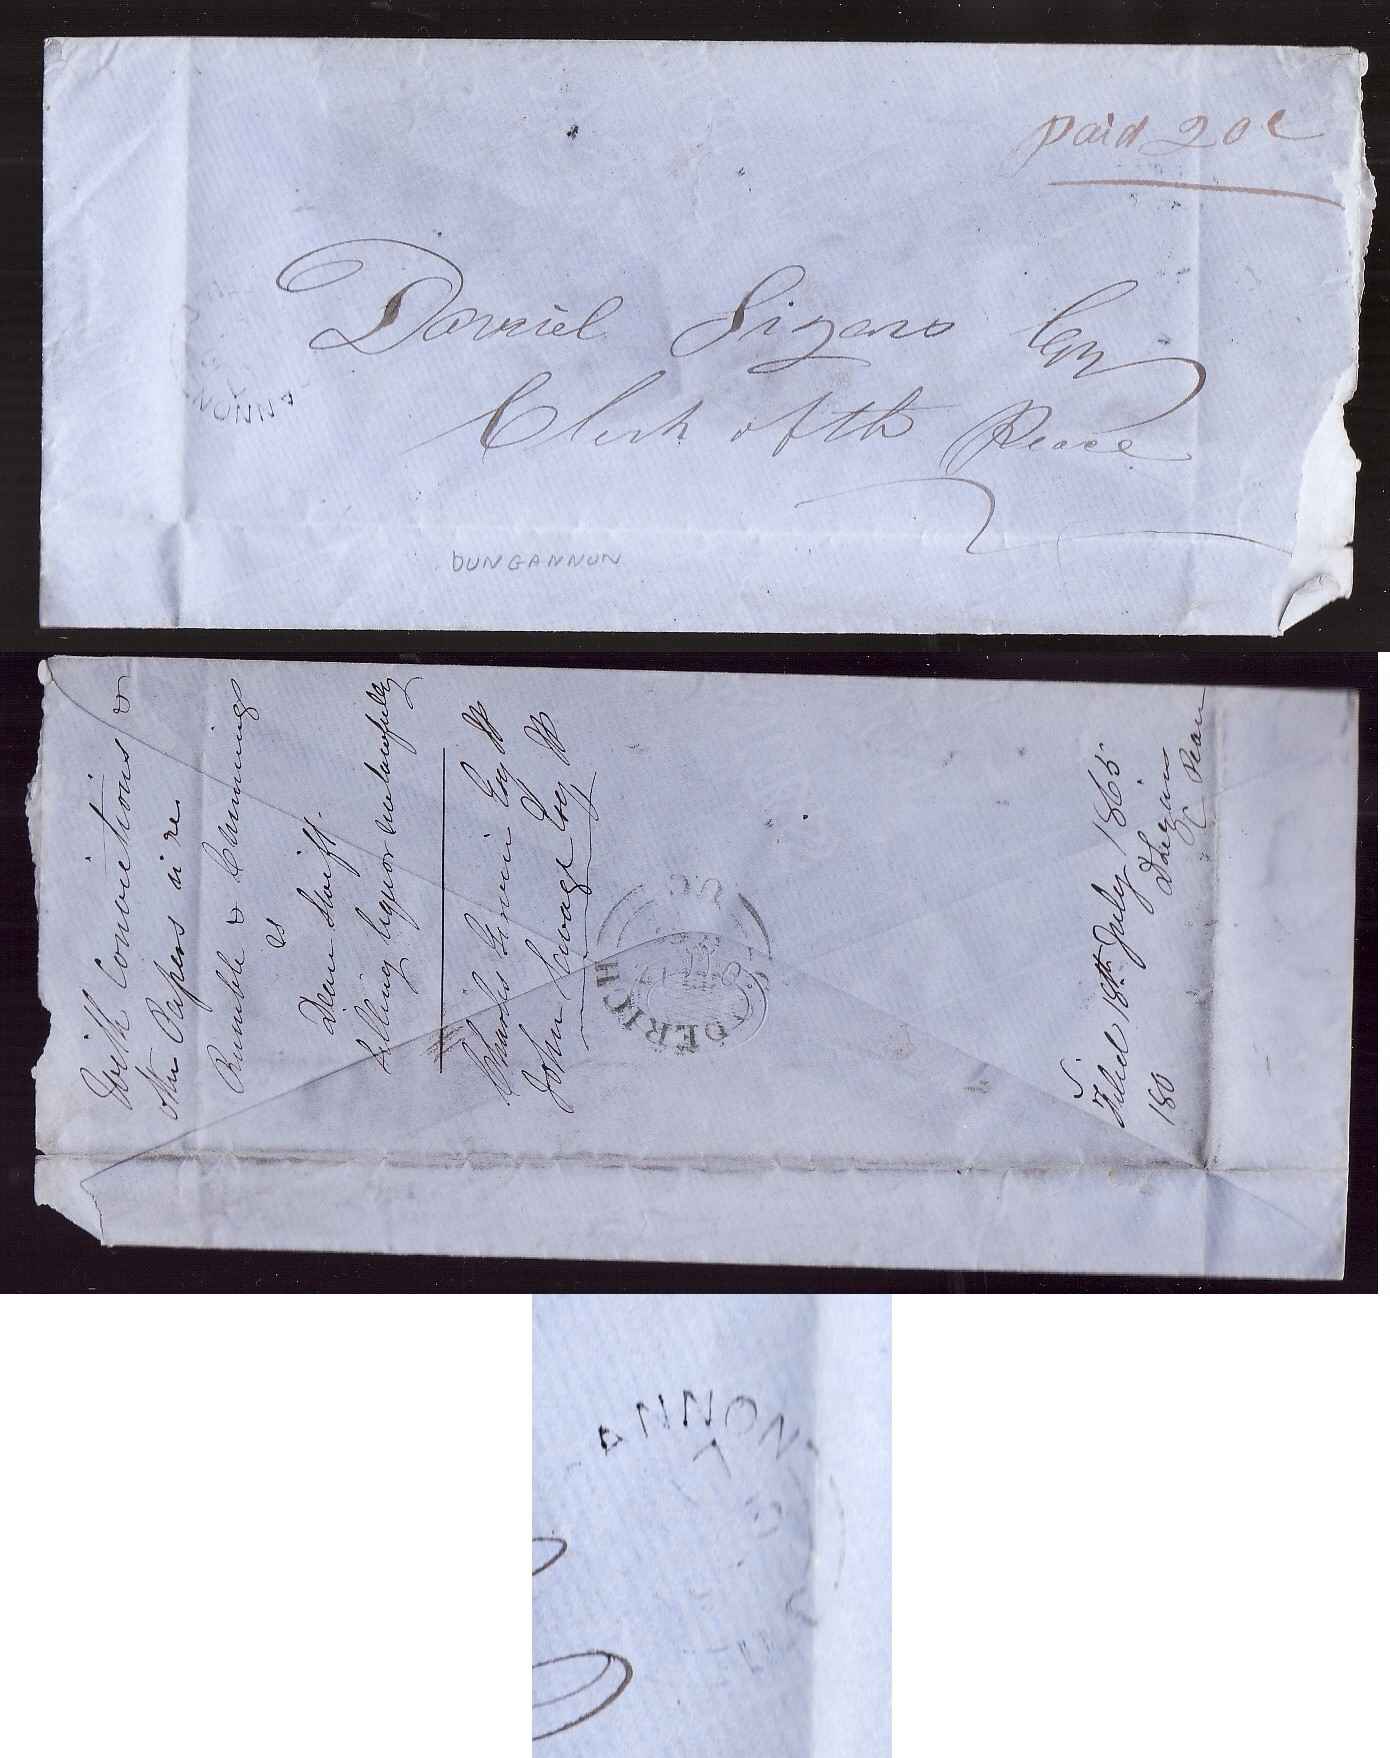 paid 20c
Daniel Lizars Esq
Clerk of the Peace
NNONA
DUNGANNON
With Convictions &
other Papers in re
Rumble & Cummings
vs
Dean Swift
selling liquor unlawfully
Charles Girvin Esq JP
John Savage Esq JP
GODERICH U.C
Filed 18th July 1865
180 D Lizars
C Peace
NNONA